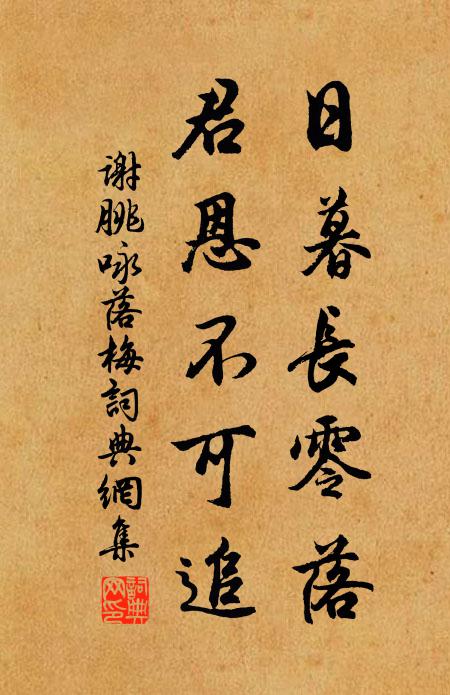 日暮長零落
君恩不可追
謝朓咏落梅詞典網集
詞典
网印